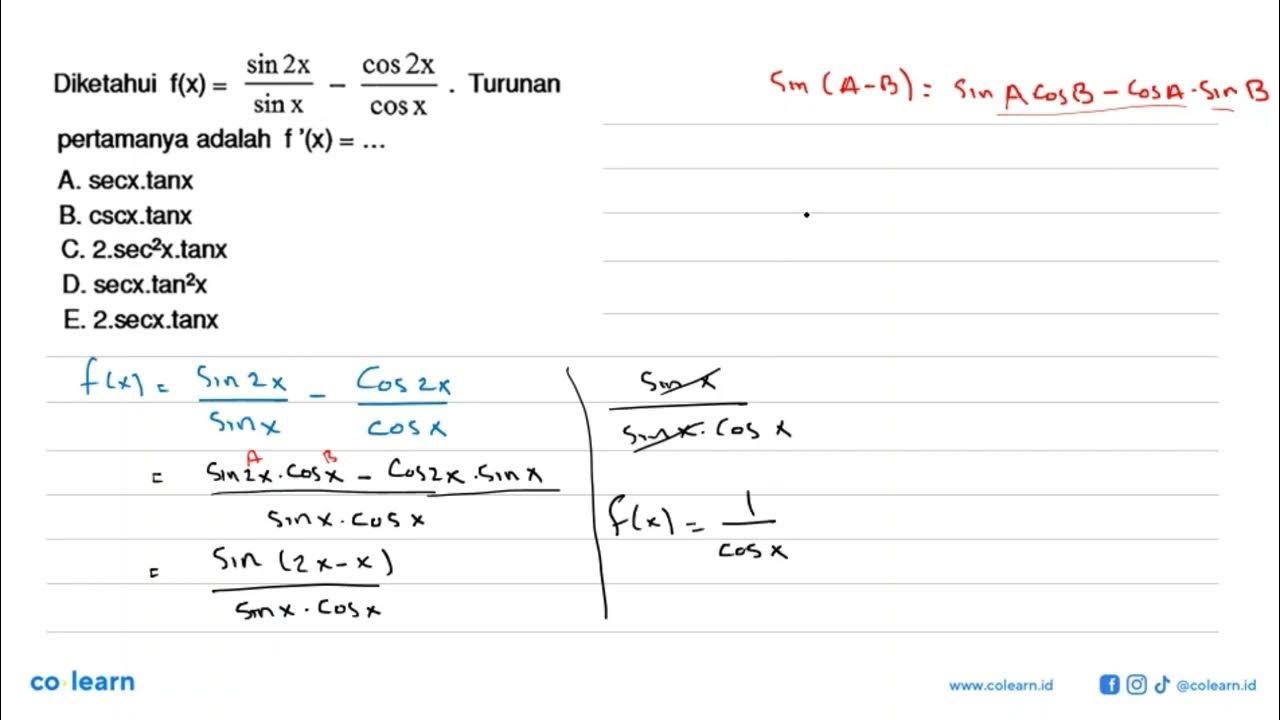 Diketahui f(x) = sin 2x / sin x − cos 2x / cos x . Turunan
pertamanya adalah f '(x) = ...
A. secx.tanx
B. cscx.tanx
C. 2.sec²x.tanx
D. secx.tan²x
E. 2.secx.tanx
Sin (A-B) = Sin A Cos B - Cos A . Sin B
f(x) = Sin 2x / Sin x - Cos 2x / Cos x
A B
= Sin 2x . Cos x - Cos 2x . Sin x / Sin x . Cos x
= Sin (2x - x) / Sin x . Cos x
Sin x / Sin x . Cos x
f(x) = 1 / Cos x
co learn
www.colearn.id
@colearn.id